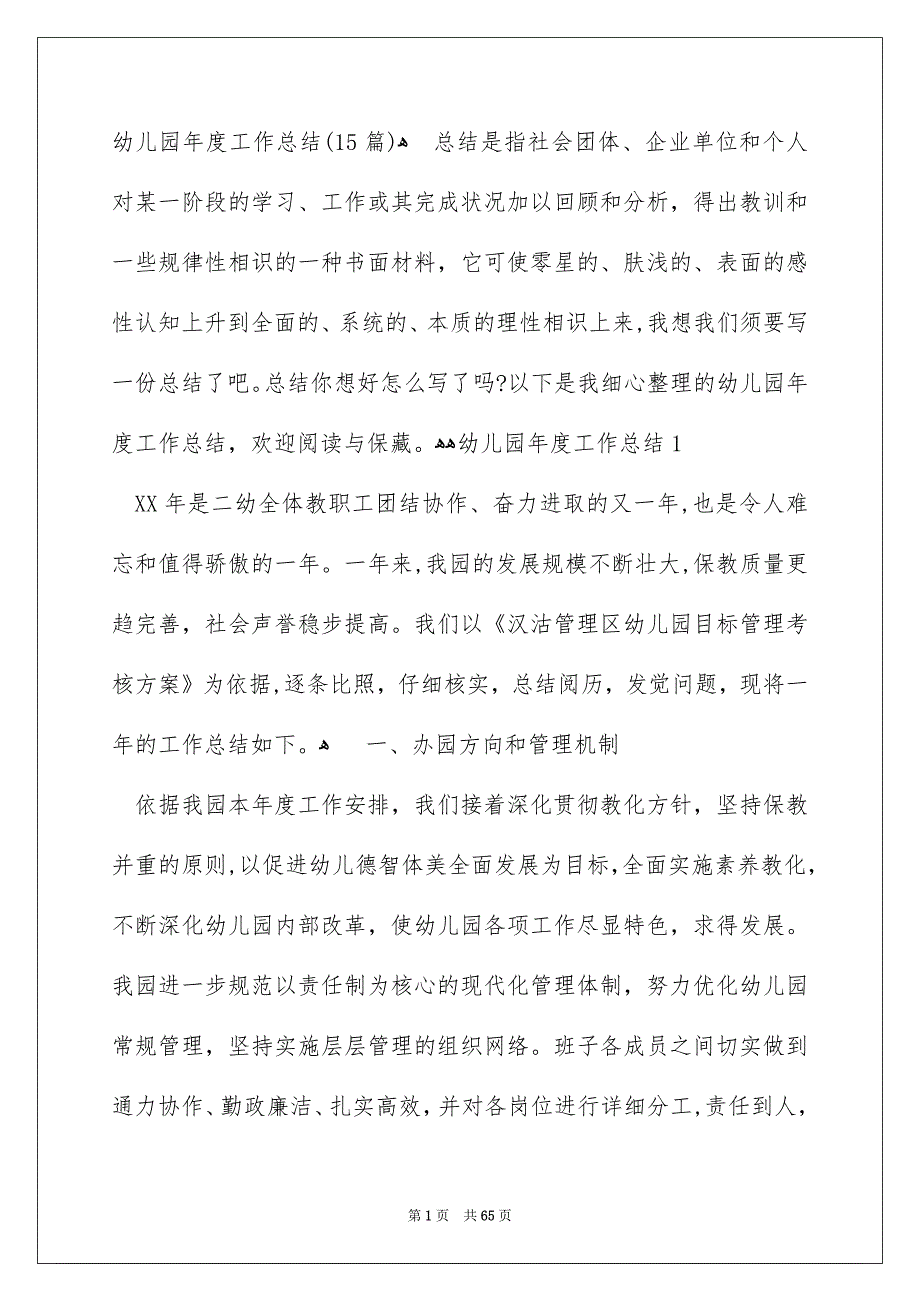 幼儿园年度工作总结(15篇)ﻫ 总结是指社会团体、企业单位和个人
对某一阶段的学习、工作或其完成状况加以回顾和分析，得出教训和
一些规律性相识的一种书面材料，它可使零星的、肤浅的、表面的感
性认知上升到全面的、系统的、本质的理性相识上来,我想我们须要写
一份总结了吧。总结你想好怎么写了吗?以下是我细心整理的幼儿园年
度工作总结，欢迎阅读与保藏。ﻫﻫ幼儿园年度工作总结1
XX年是二幼全体教职工团结协作、奋力进取的又一年,也是令人难
忘和值得骄傲的一年。一年来,我园的发展规模不断壮大,保教质量更
趋完善，社会声誉稳步提高。我们以《汉沽管理区幼儿园目标管理考
核方案》为依据,逐条比照，仔细核实，总结阅历，发觉问题，现将一
年的工作总结如下。ﻫ 一、办园方向和管理机制
依据我园本年度工作安排，我们接着深化贯彻教化方针，坚持保教
并重的原则,以促进幼儿德智体美全面发展为目标,全面实施素养教化,
不断深化幼儿园内部改革，使幼儿园各项工作尽显特色，求得发展。
我园进一步规范以责任制为核心的现代化管理体制，努力优化幼儿园
常规管理，坚持实施层层管理的组织网络。班子各成员之间切实做到
通力协作、勤政廉洁、扎实高效，并对各岗位进行详细分工,责任到人，
第1页 共65页